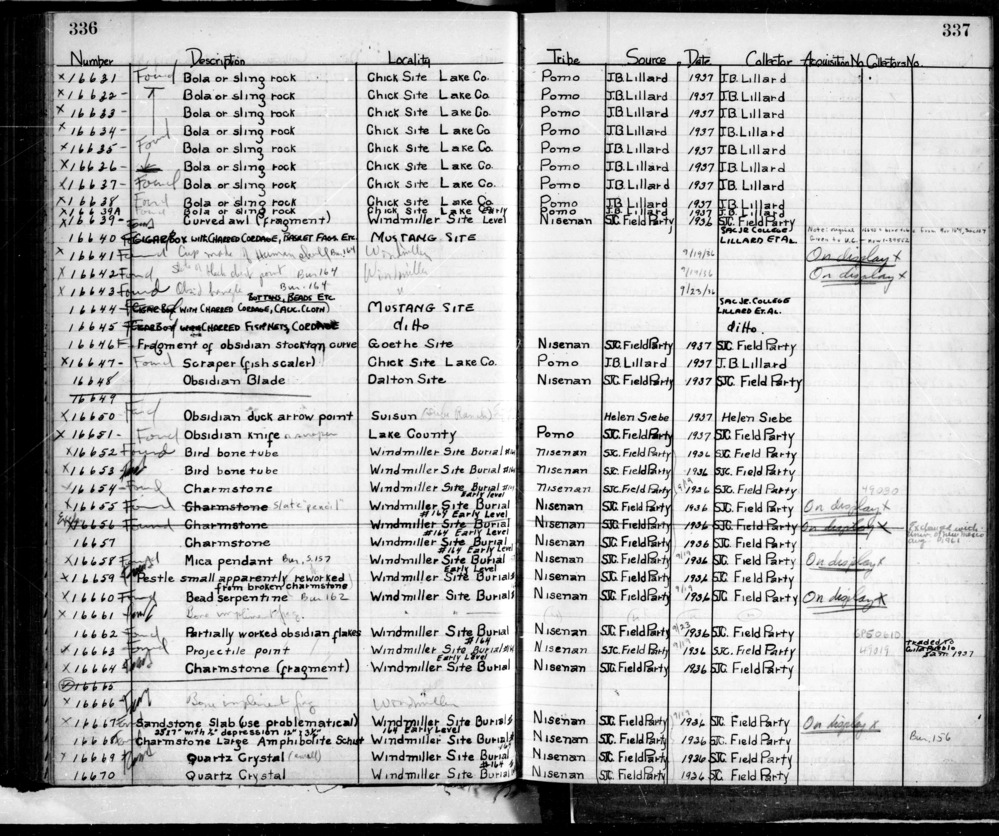 336
337
Number Description Locality Tribe Source Date Collector Acquisition No. Collectors No.
x16631 Found Bola or sling rock Chick Site Lake Co. Pomo J.B. Lillard 1937 J.B. Lillard
x16632- Bola or sling rock Chick Site Lake Co. Pomo J.B. Lillard 1937 J.B. Lillard
x16633- Bola or sling rock Chick Site Lake Co. Pomo J.B. Lillard 1937 J.B. Lillard
x16634- Bola or sling rock Chick Site Lake Co. Pomo J.B. Lillard 1937 J.B. Lillard
x16635- Found Bola or sling rock Chick Site Lake Co. Pomo J.B. Lillard 1937 J.B. Lillard
x16636- Bola or sling rock Chick Site Lake Co. Pomo J.B. Lillard 1937 J.B. Lillard
x16637- Found Bola or sling rock Chick Site Lake Co. Pomo J.B. Lillard 1937 J.B. Lillard
x16638 Found Bola or sling rock Chick Site Lake Co. Pomo J.B. Lillard 1937 J.B. Lillard
x16639A Found Bola or sling rock Chick Site Lake Pomo J.B. Lillard 1937 J.B. Lillard
x16639- Found Curved awl (fragment) Windmiller Site Early Level Nisenan SJC Field Party 1936 SJC Field Party
16640 CIGAR BOX WITH CHARRED CORDAGE, BASKET FRAGS. ETC. MUSTANG SITE SAC JR COLLEGE LILLARD ET AL.
x16641 Found Cup made of Human skull Bur. 164 Windmiller 9/19/36 On display x
x16642 Found Bur. 164 Windmiller 9/19/36 On display x
x16643 Found Obsid bangle Bur. 164 " 9/23/36
16644 CIGAR BOX WITH CHARRED CORDAGE, (AUC. CLOTH) BUTTONS, BEADS ETC. MUSTANG SITE SAC JR. COLLEGE LILLARD ET. AL.
16645 CIGAR BOX WITH CHARRED FISH NETS, CORDAGE ditto ditto.
16646 F- Fragment of obsidian stockton curve Goethe Site Nisenan SJC Field Party 1937 SJC. Field Party
x16647- Found Scraper (fish scaler) Chick Site Lake Co. Pomo J.B. Lillard 1937 J.B. Lillard
16648 Obsidian Blade Dalton Site Nisenan SJC Field Party 1937 SJC. Field Party
16649
x16650 Found Obsidian duck arrow point Suisun Helen Siebe 1937 Helen Siebe
x16651- Found Obsidian knife Lake County Pomo SJC Field Party 1937 SJC. Field Party
x16652 Found Bird bone tube Windmiller Site Burial #164 Nisenan SJC. Field Party 1936 SJC. Field Party
x16653 Found Bird bone tube Windmiller Site Burial #164 Nisenan SJC. Field Party 1936 SJC. Field Party
x16654- Found Charmstone Windmiller Site Burial Early level Nisenan SJC Field Party 9/19 1936 SJC. Field Party 49030
x16655 Found Charmstone Slate "pencil" Windmiller Site Burial #164 Early Level Nisenan SJC. Field Party 1936 SJC. Field Party On display x
16656 Found Charmstone Windmiller Site Burial #164 Early Level Nisenan SJC. Field Party 1936 SJC. Field Party On display x Exchange with Univ. of New Mexico Aug. 1961
16657 Charmstone Windmiller Site Burial #164 Early Level Nisenan SJC. Field Party 1936 SJC. Field Party
x16658 Found Mica pendant Bur. 157 Windmiller Site Burial Early Level Nisenan SJC. Field Party 9/19 1936 SJC. Field Party On display x
x16659 Found Pestle small apparently reworked from broken charmstone Windmiller Site Burials Nisenan SJC. Field Party 1936 SJC. Field Party
x16660 Found Bead serpentine Bur 162 Windmiller Site Burials Nisenan SJC. Field Party 1936 SJC. Field Party On display x
x16661 Found Bone implement frag. " "
16662 Found Partially worked obsidian flakes Windmiller Site Burial #164 Nisenan SJC. Field Party 9/23 1936 SJC. Field Party
x16663 Found Projectile point Windmiller Site Burial #164 Early Level Nisenan SJC. Field Party 9/19 1936 SJC. Field Party 49019 Traded to Gila Pueblo 1937
x16664 Found Charmstone (fragment) Windmiller Site Burial Nisenan SJC. Field Party 1936 SJC. Field Party
16665
x16666- Found Bone implement frag Windmiller "
x16667 Sandstone Slab (use problematical) 25x17" with ½" depression Windmiller Site Burials 164 Early Level Nisenan SJC. Field Party 1936 SJC. Field Party On display x
16668 Charmstone Large Amphibolite Schist Windmiller Site Burials Nisenan SJC. Field Party 1936 SJC. Field Party Bur. 156
16669 Found Quartz Crystal (small) Windmiller Site Burial #164 Nisenan SJC. Field Party 1936 SJC. Field Party
16670 Quartz Crystal Windmiller Site Burials Nisenan SJC. Field Party 1936 SJC Field Party